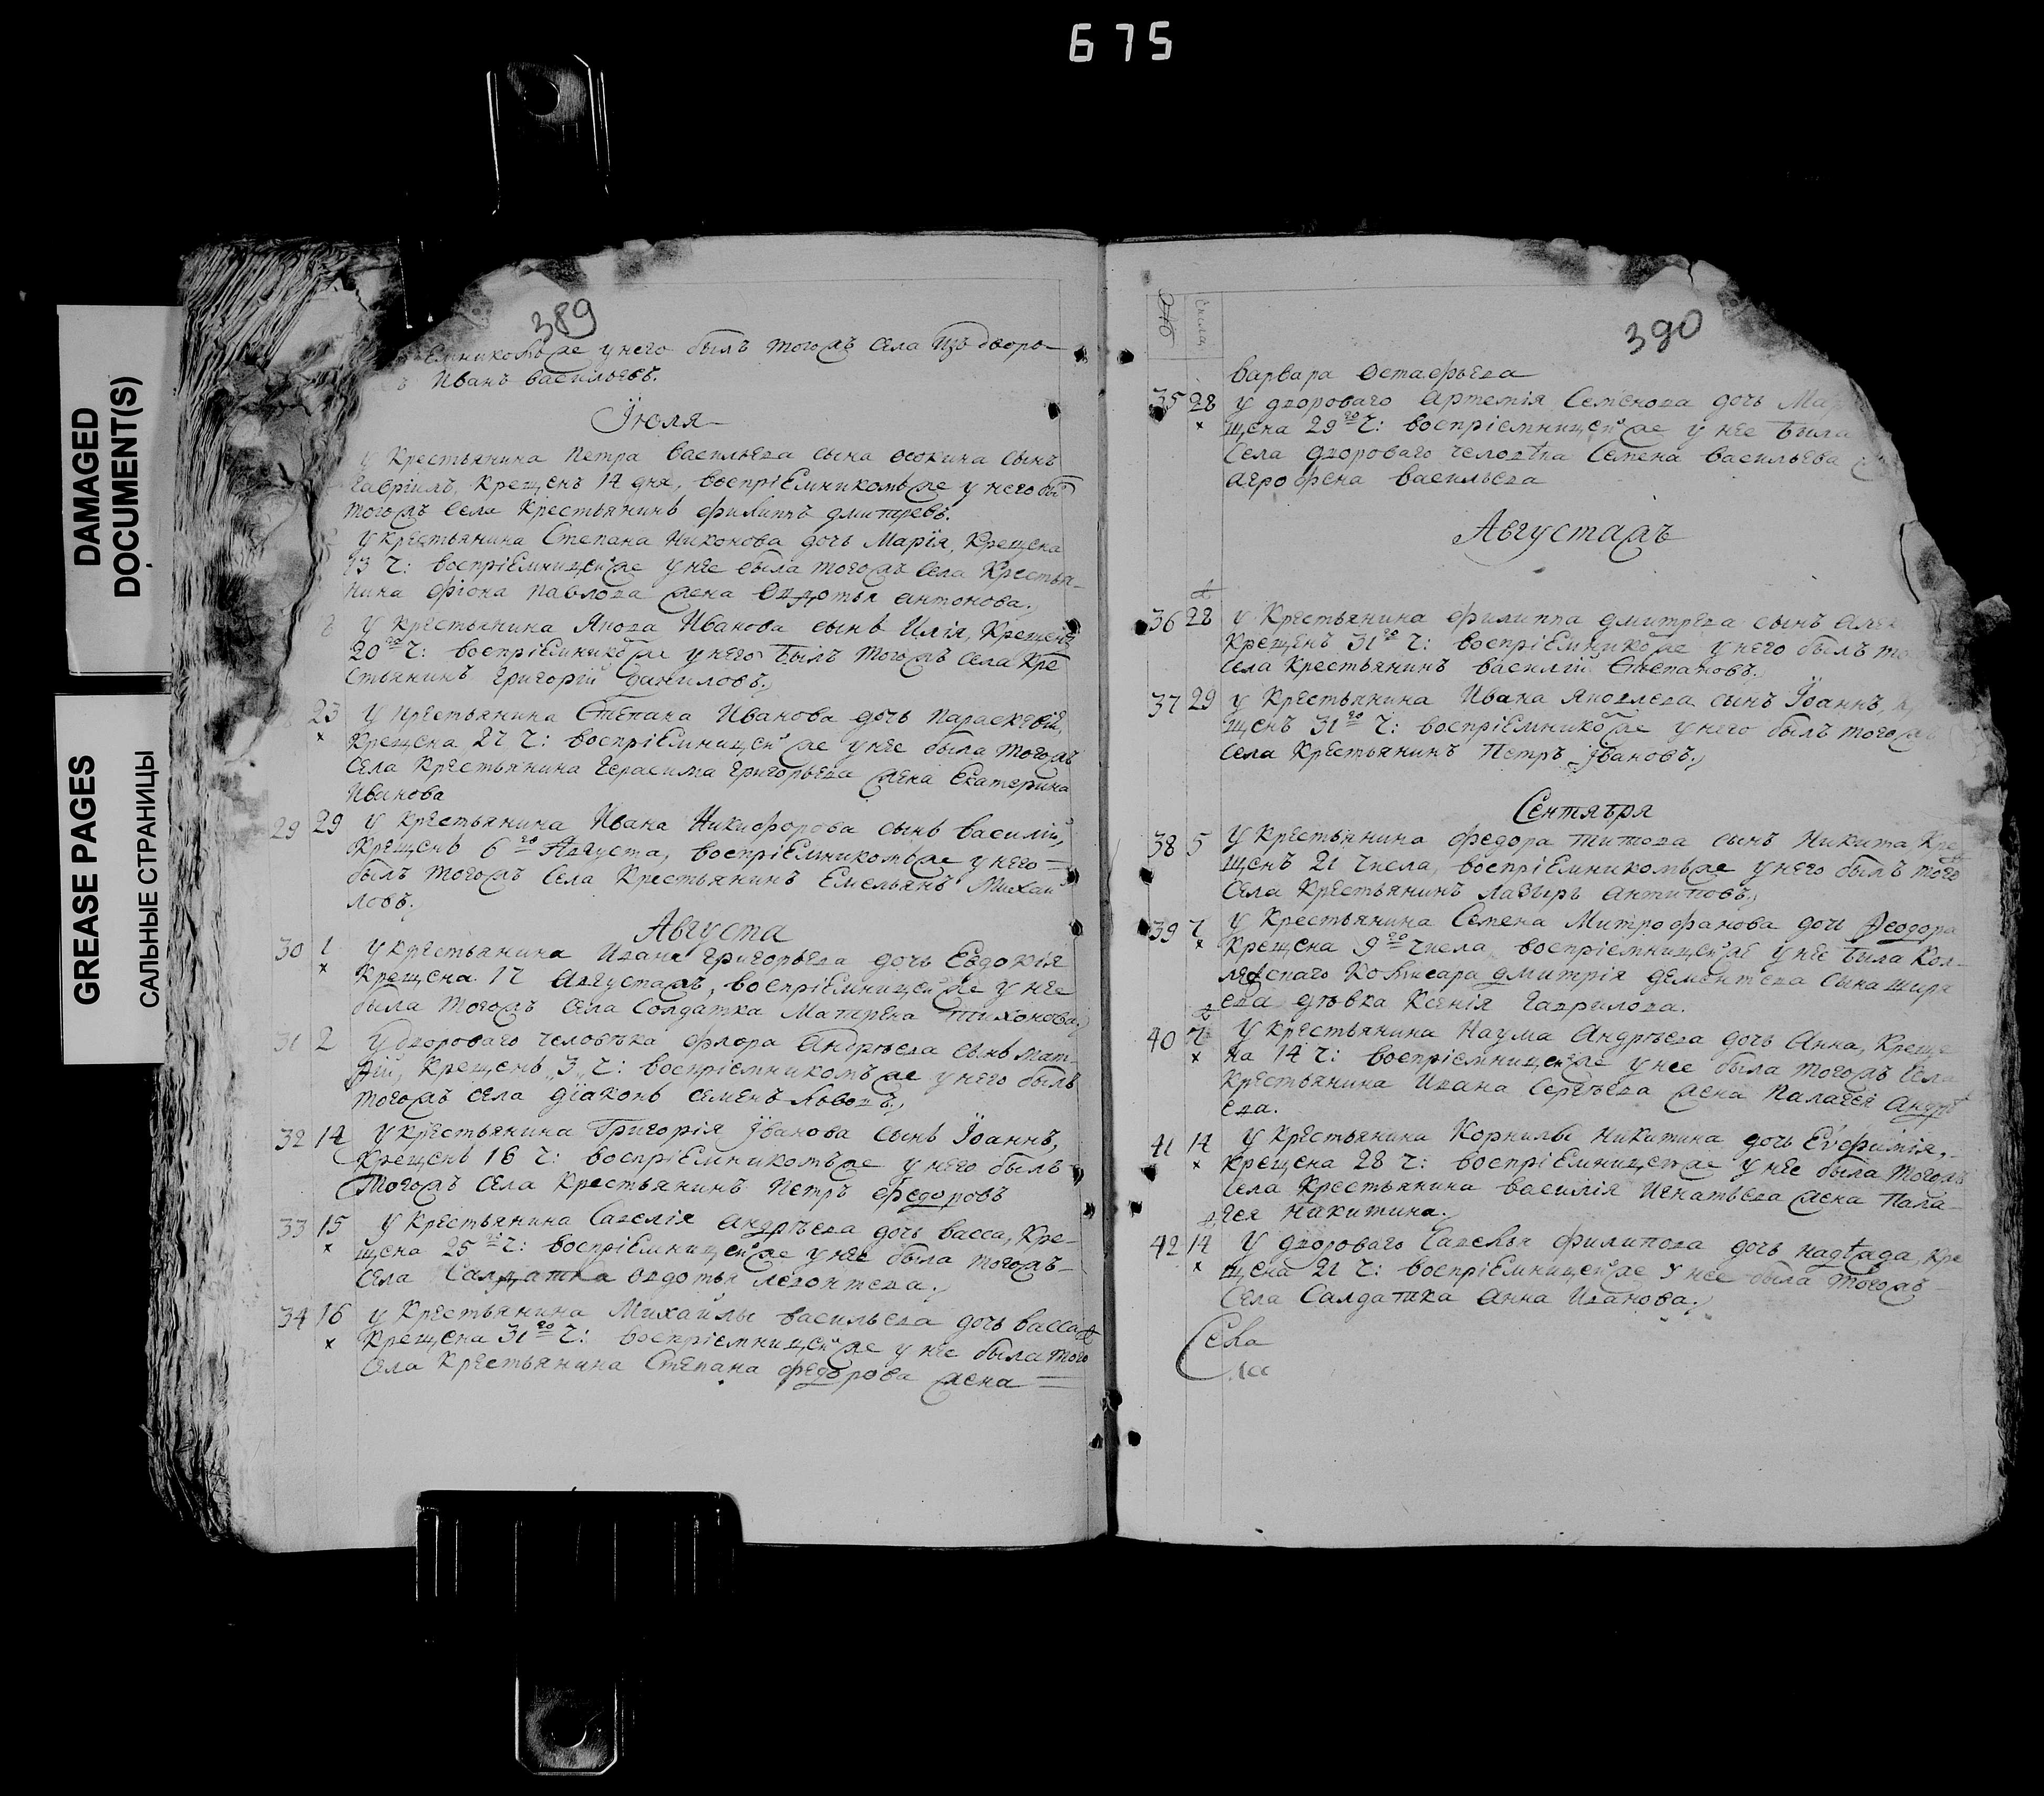 675
DAMAGED
DOCUMENT(S)
GREASE PAGES
САЛЬНЫЕ СТРАНИЦЫ
389
емникомъже унего былъ тогожъ села изъ дворо-
Иванъ Васильевъ.
Июля
У крестьянина Петра Васильева сына Осокина сынъ
Гавріилъ, крещенъ 14 дня, воспріемникомъже у него бы
тогожъ села крестьянинъ Филиппъ Дмитревъ.
У крестьянина Степана Никонова дочь Марія, крещена
13 ч: воспріемницейже унее была тогожъ села крестья-
нина Фіона Павлова жена Овдотья Антонова.
У крестьянина Якова Иванова сынъ Илія, крещенъ
20го ч: воспріемникоже унего былъ тогожъ села кре
стьянинъ Григорій Даниловъ.
23 У крестьянина Степана Иванова дочь Параскевія,
× крещена 27 ч: воспріемницейже унее была тогожъ
села крестьянина Герасима Григорьева жена Екатерина
Иванова
29 29 У крестьянина Ивана Никифорова сынъ Василій,
крещенъ 6го Августа, воспріемникомъже у него
былъ тогожъ села крестьянинъ Емельянъ Михаи
ловъ.
Августа
30 1 У крестьянина Ивана Григорьева дочь Евдокия
× крещена 17 Августажъ, воспріемницейже у нее
была тогожъ села солдатка Матрена Тихонова
31 2 У двороваго человѣка Флора Андрѣева сынъ Мат
ѳій, крещенъ „3„ ч: воспріемникомъже у него былъ
тогожъ села діаконъ Семенъ Львовъ.
32 14 У крестьянина Григорія Іванова сынъ Іоаннъ,
крещенъ 16 ч: воспріемникомъже у него былъ
тогожъ села крестьянинъ Петръ Федоровъ
33 15 У крестьянина Савелія Андрѣева дочь Васса, кре-
× щена 25го ч: воспріемницейже у нее была тогожъ
села салдатка Овдотья Леонтева.
34 16 У крестьянина Михайлы Васильева дочь Васса
× крещена 31го ч: воспріемницейже у нее была тогожъ
села крестьянина Степана Федорова жена
390
Числа
Варвара Остафьева
35 28 У двороваго Артемія Семенова дочь Мар
× щена 29го ч: воспріемницейже у нее была
села двороваго человѣка Семена Васильева
Агрофена Васильева
Августажъ
36 28 У крестьянина Филиппа Дмитрева сынъ Алек
крещенъ 31го ч: воспріемникоже у него былъ то
села крестьянинъ Василій Степановъ.
37 29 У крестьянина Ивана Яковлева сынъ Іоаннъ, кр
щенъ 31го ч: воспріемникоже у него былъ тогожъ
села крестьянинъ Петръ Івановъ.
Сентября
38 5 У крестьянина Федора Титова сынъ Никита кре
щенъ 21 числа, воспріемникомъже у него былъ тогожъ
села крестьянинъ Лазырь Антиповъ.
39 7 У крестьянина Семена Митрофанова дочь Ѳеодора
× крещена 9го числа, воспріемницейже у нее была Кол-
Комисара Дмитрія Дементева сына Ширя
ева дѣвка Ксенія Гаврилова.
40 7 У крестьянина Наума Андрѣева дочь Анна, креще
× на 14 ч: воспріемницейже у нее была тогожъ села
крестьянина Ивана Сергѣева жена Палагея Андрѣ
ева.
41 14 У крестьянина Корнилы Никитина дочь Евфимія,
× крещена 28 ч: воспріемницейже у нее была тогожъ
села крестьянина Василія Игнатьева жена Пала-
гея Никитина.
42 14 У двороваго Савелья Филипова дочь Надѣжда, кре
× щена 21 ч: воспріемницейже у нее была тогожъ
села салдатка Анна Иванова.